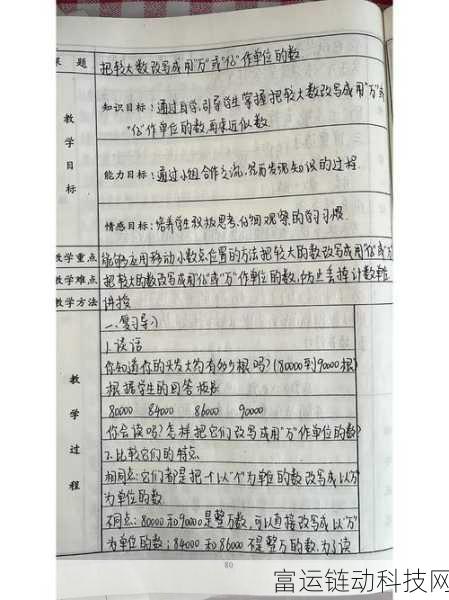 课 题 把较大数改写成用"万"或"亿"作单位的数
教学目标
知识目标:通过自学,引导学生掌握把较大数改写成用"万"或
"亿"作单位的数,再求近似数.
能力目标:通过小组合作交流,发现知识的过程.
情感目标:培养学生积极思考,仔细观察的学习习惯.
教学重点 能够应用移动小数点位置的方法把较大的数改写成用"亿"或"万"
教学难点 把较大的数改写成用"亿"或"万"作单位的数,防止丢掉计数单位
教学方法 讲授
教学过程
一.复习导入
1.谈话
你知道你的头发大约有多少根吗?(80000到90000根)
根据学生的回答板书
80000 84000 86000 90000
你会读吗?怎样把它们改写成用"万"作单位的数?
2.比较它们的特点
相同点:它们都是把一个以"个"为单位的数改写成以"万"
为单位的数
不同点:80000和90000是整万数,可以直接改写成以"万"
为单位的数;84000和86000不是整万的数,为了读
80
富运链动科技网